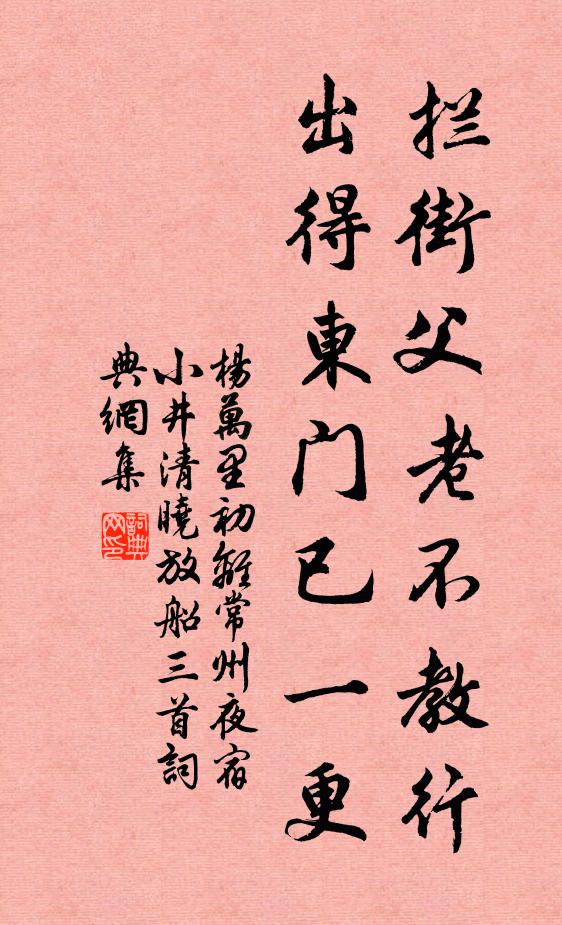 拦街父老不教行
出得東门已一更
楊萬里初離常州夜宿
小井清曉放船三首詞
典網集
詞典
网印